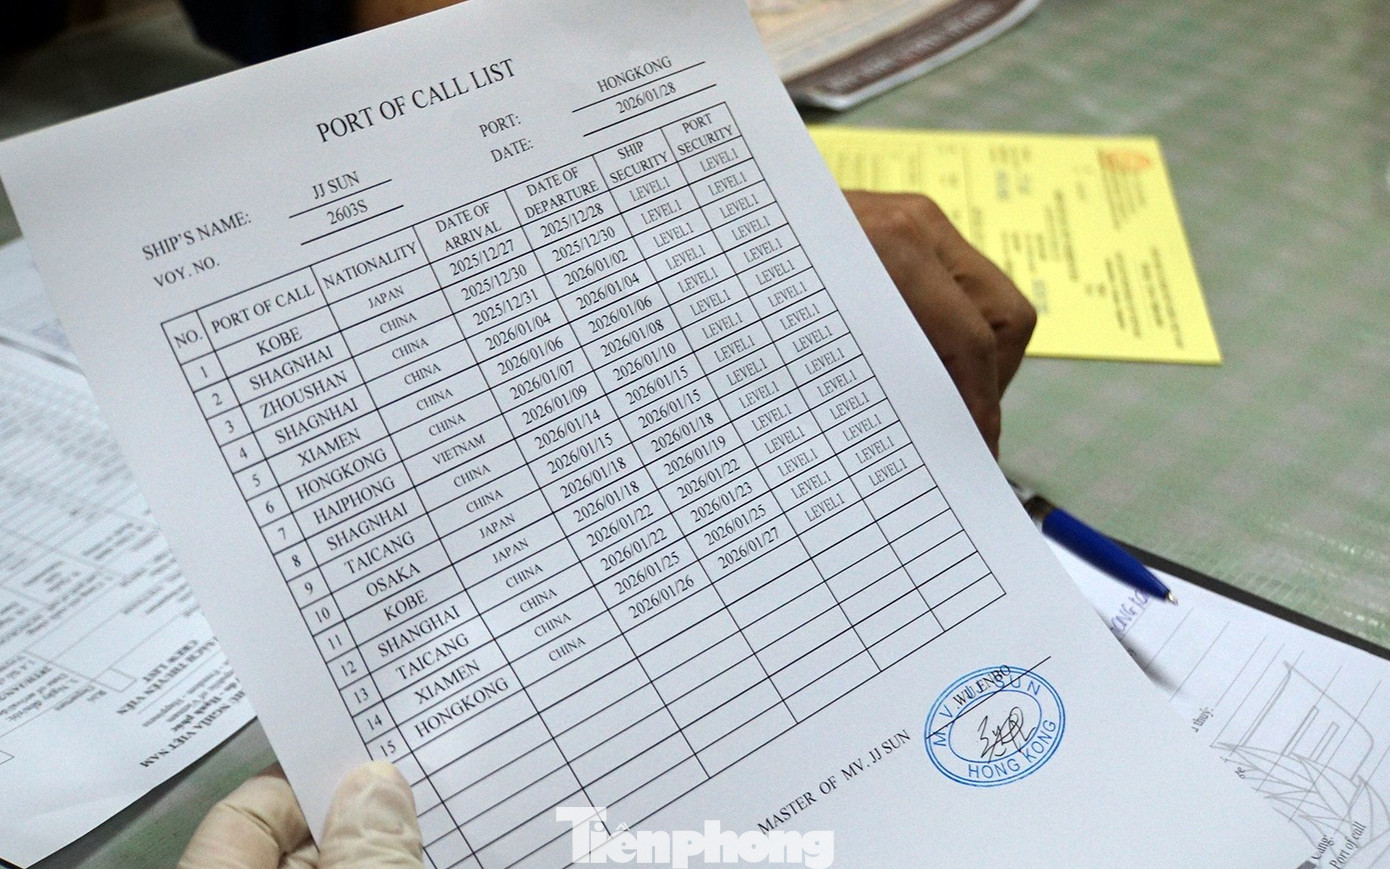 PORT OF CALL LIST
SHIP'S NAME: JJ SUN PORT: HONGKONG
VOY. NO. 2603S DATE: 2026/01/28
NO. PORT OF CALL NATIONALITY DATE OF ARRIVAL DATE OF DEPARTURE SHIP SECURITY PORT SECURITY
1 KOBE JAPAN 2025/12/27 2025/12/28 LEVEL1 LEVEL1
2 SHAGNHAI CHINA 2025/12/30 2025/12/30 LEVEL1 LEVEL1
3 ZHOUSHAN CHINA 2025/12/31 2026/01/02 LEVEL1 LEVEL1
4 SHAGNHAI CHINA 2026/01/04 2026/01/04 LEVEL1 LEVEL1
5 XIAMEN CHINA 2026/01/06 2026/01/06 LEVEL1 LEVEL1
6 HONGKONG CHINA 2026/01/07 2026/01/08 LEVEL1 LEVEL1
7 HAIPHONG VIETNAM 2026/01/09 2026/01/10 LEVEL1 LEVEL1
8 SHAGNHAI CHINA 2026/01/14 2026/01/15 LEVEL1 LEVEL1
9 TAICANG CHINA 2026/01/15 2026/01/15 LEVEL1 LEVEL1
10 OSAKA JAPAN 2026/01/18 2026/01/18 LEVEL1 LEVEL1
11 KOBE JAPAN 2026/01/18 2026/01/19 LEVEL1 LEVEL1
12 SHANGHAI CHINA 2026/01/22 2026/01/22 LEVEL1 LEVEL1
13 TAICANG CHINA 2026/01/22 2026/01/23 LEVEL1 LEVEL1
14 XIAMEN CHINA 2026/01/25 2026/01/25 LEVEL1 LEVEL1
15 HONGKONG CHINA 2026/01/26 2026/01/27 LEVEL1 LEVEL1
MASTER OF MV. JJ SUN
WU JENBO
M.V. JJ SUN
HONG KONG
Tiênphong
VIỆT NAM
Port of call